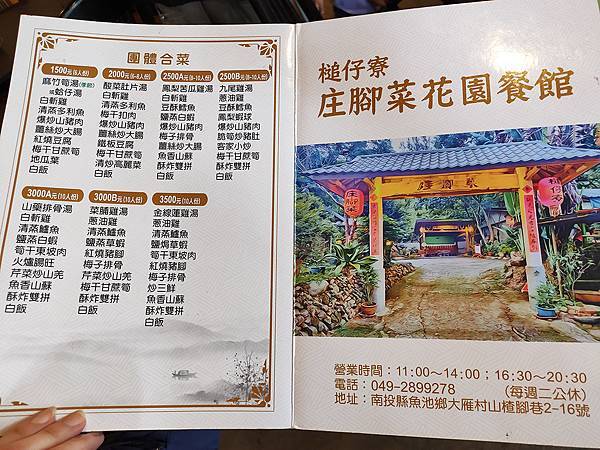 團體合菜
1500元(6人份)
麻竹筍湯(季節)
或蛤仔湯
白斬雞
清蒸多利魚
爆炒山豬肉
薑絲炒大腸
紅燒豆腐
梅干甘蔗筍
地瓜葉
白飯
2000元(6-8人份)
酸菜肚片湯
白斬雞
清蒸多利魚
梅干扣肉
爆炒山豬肉
薑絲炒大腸
鐵板豆腐
梅干甘蔗筍
清炒高麗菜
白飯
2500A(8-10人份)
鳳梨苦瓜雞湯
白斬雞
豆酥鱈魚
鹽蒸白蝦
爆炒山豬肉
梅子排骨
薑絲炒大腸
魚香山蘇
酥炸雙拼
白飯
2500B(8-10人份)
九尾雞湯
蔥油雞
豆酥鱈魚
鳳梨蝦球
爆炒山豬肉
脆筍炒豬肚
客家小炒
梅干甘蔗筍
酥炸雙拼
白飯
3000A(10人份)
山藥排骨湯
白斬雞
清蒸鱸魚
鹽蒸白蝦
筍干東坡肉
火爐腸旺
芹菜炒山羌
魚香山蘇
酥炸雙拼
白飯
3000B(10人份)
菜脯雞湯
蔥油雞
清蒸鱸魚
鹽蒸草蝦
紅燒豬腳
梅子排骨
芹菜炒山羌
梅干甘蔗筍
酥炸雙拼
白飯
3500(10人份)
金線蓮雞湯
蔥油雞
清蒸鱸魚
鹽焗草蝦
筍干東坡肉
紅燒豬腳
梅子排骨
炒三鮮
魚香山蘇
酥炸雙拼
白飯
槌仔寮
庄腳菜花園餐館
營業時間：11:00～14:00；16:30～20:30
電話：049-2899278 (每週二公休)
地址：南投縣魚池鄉大雁村山楂腳巷2-16號